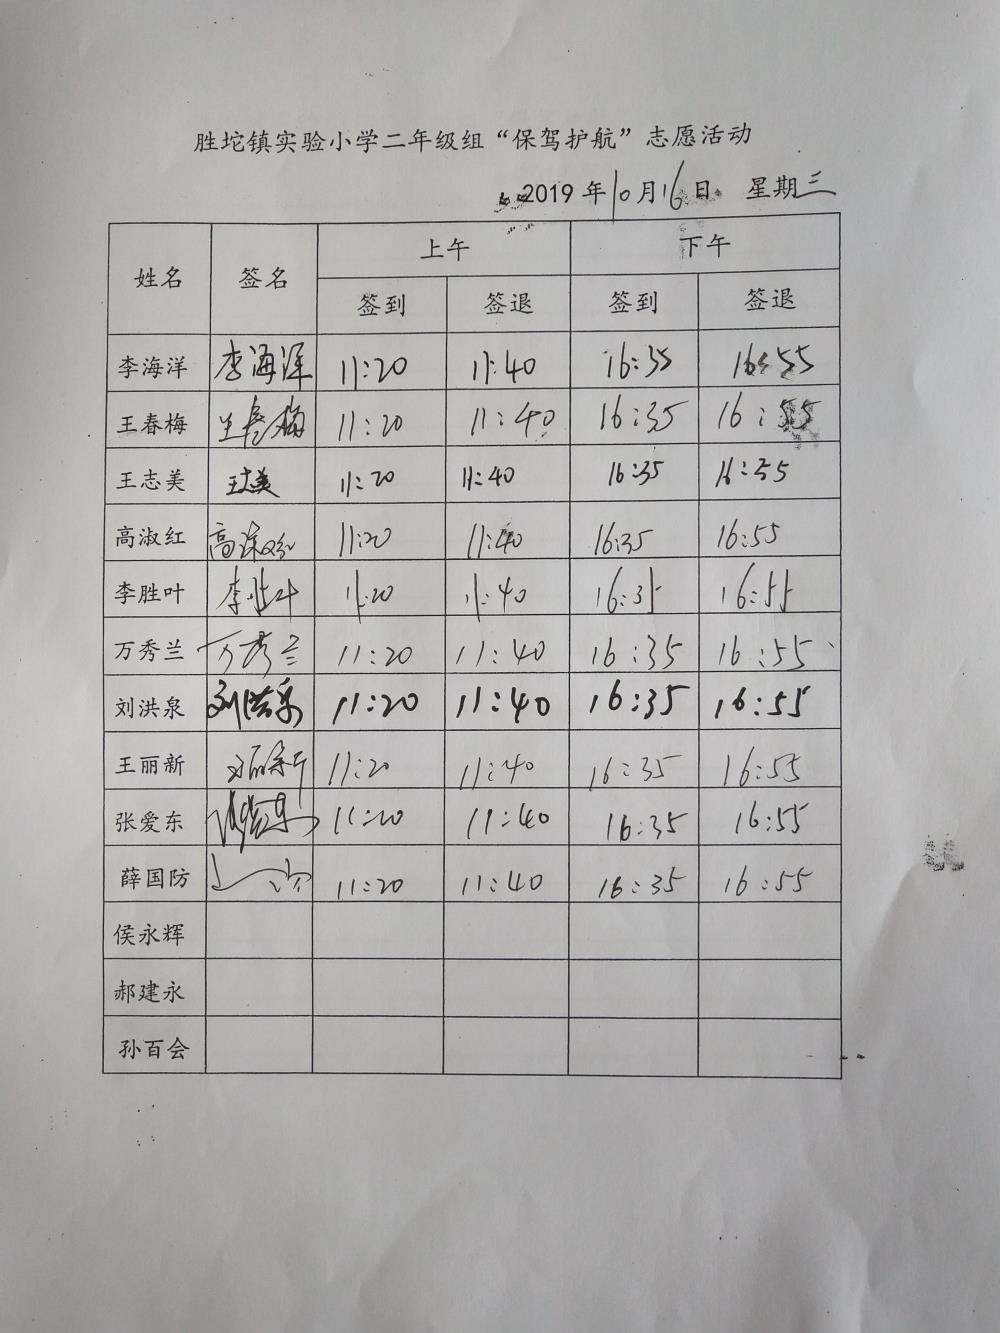 胜坨镇实验小学二年级组“保驾护航”志愿活动
2019年10月16日 星期三
姓名 签名 上午 下午
签到 签退 签到 签退
李海洋 李海洋 11:20 11:40 16:35 16:55
王春梅 王春梅 11:20 11:40 16:35 16:55
王志美 王志美 11:20 11:40 16:35 16:55
高淑红 高淑红 11:20 11:40 16:35 16:55
李胜叶 李胜叶 11:20 11:40 16:35 16:55
万秀兰 万秀兰 11:20 11:40 16:35 16:55
刘洪泉 刘洪泉 11:20 11:40 16:35 16:55
王丽新 王丽新 11:20 11:40 16:35 16:55
张爱东 张爱东 11:20 11:40 16:35 16:55
薛国防 11:20 11:40 16:35 16:55
侯永辉
郝建永
孙百会